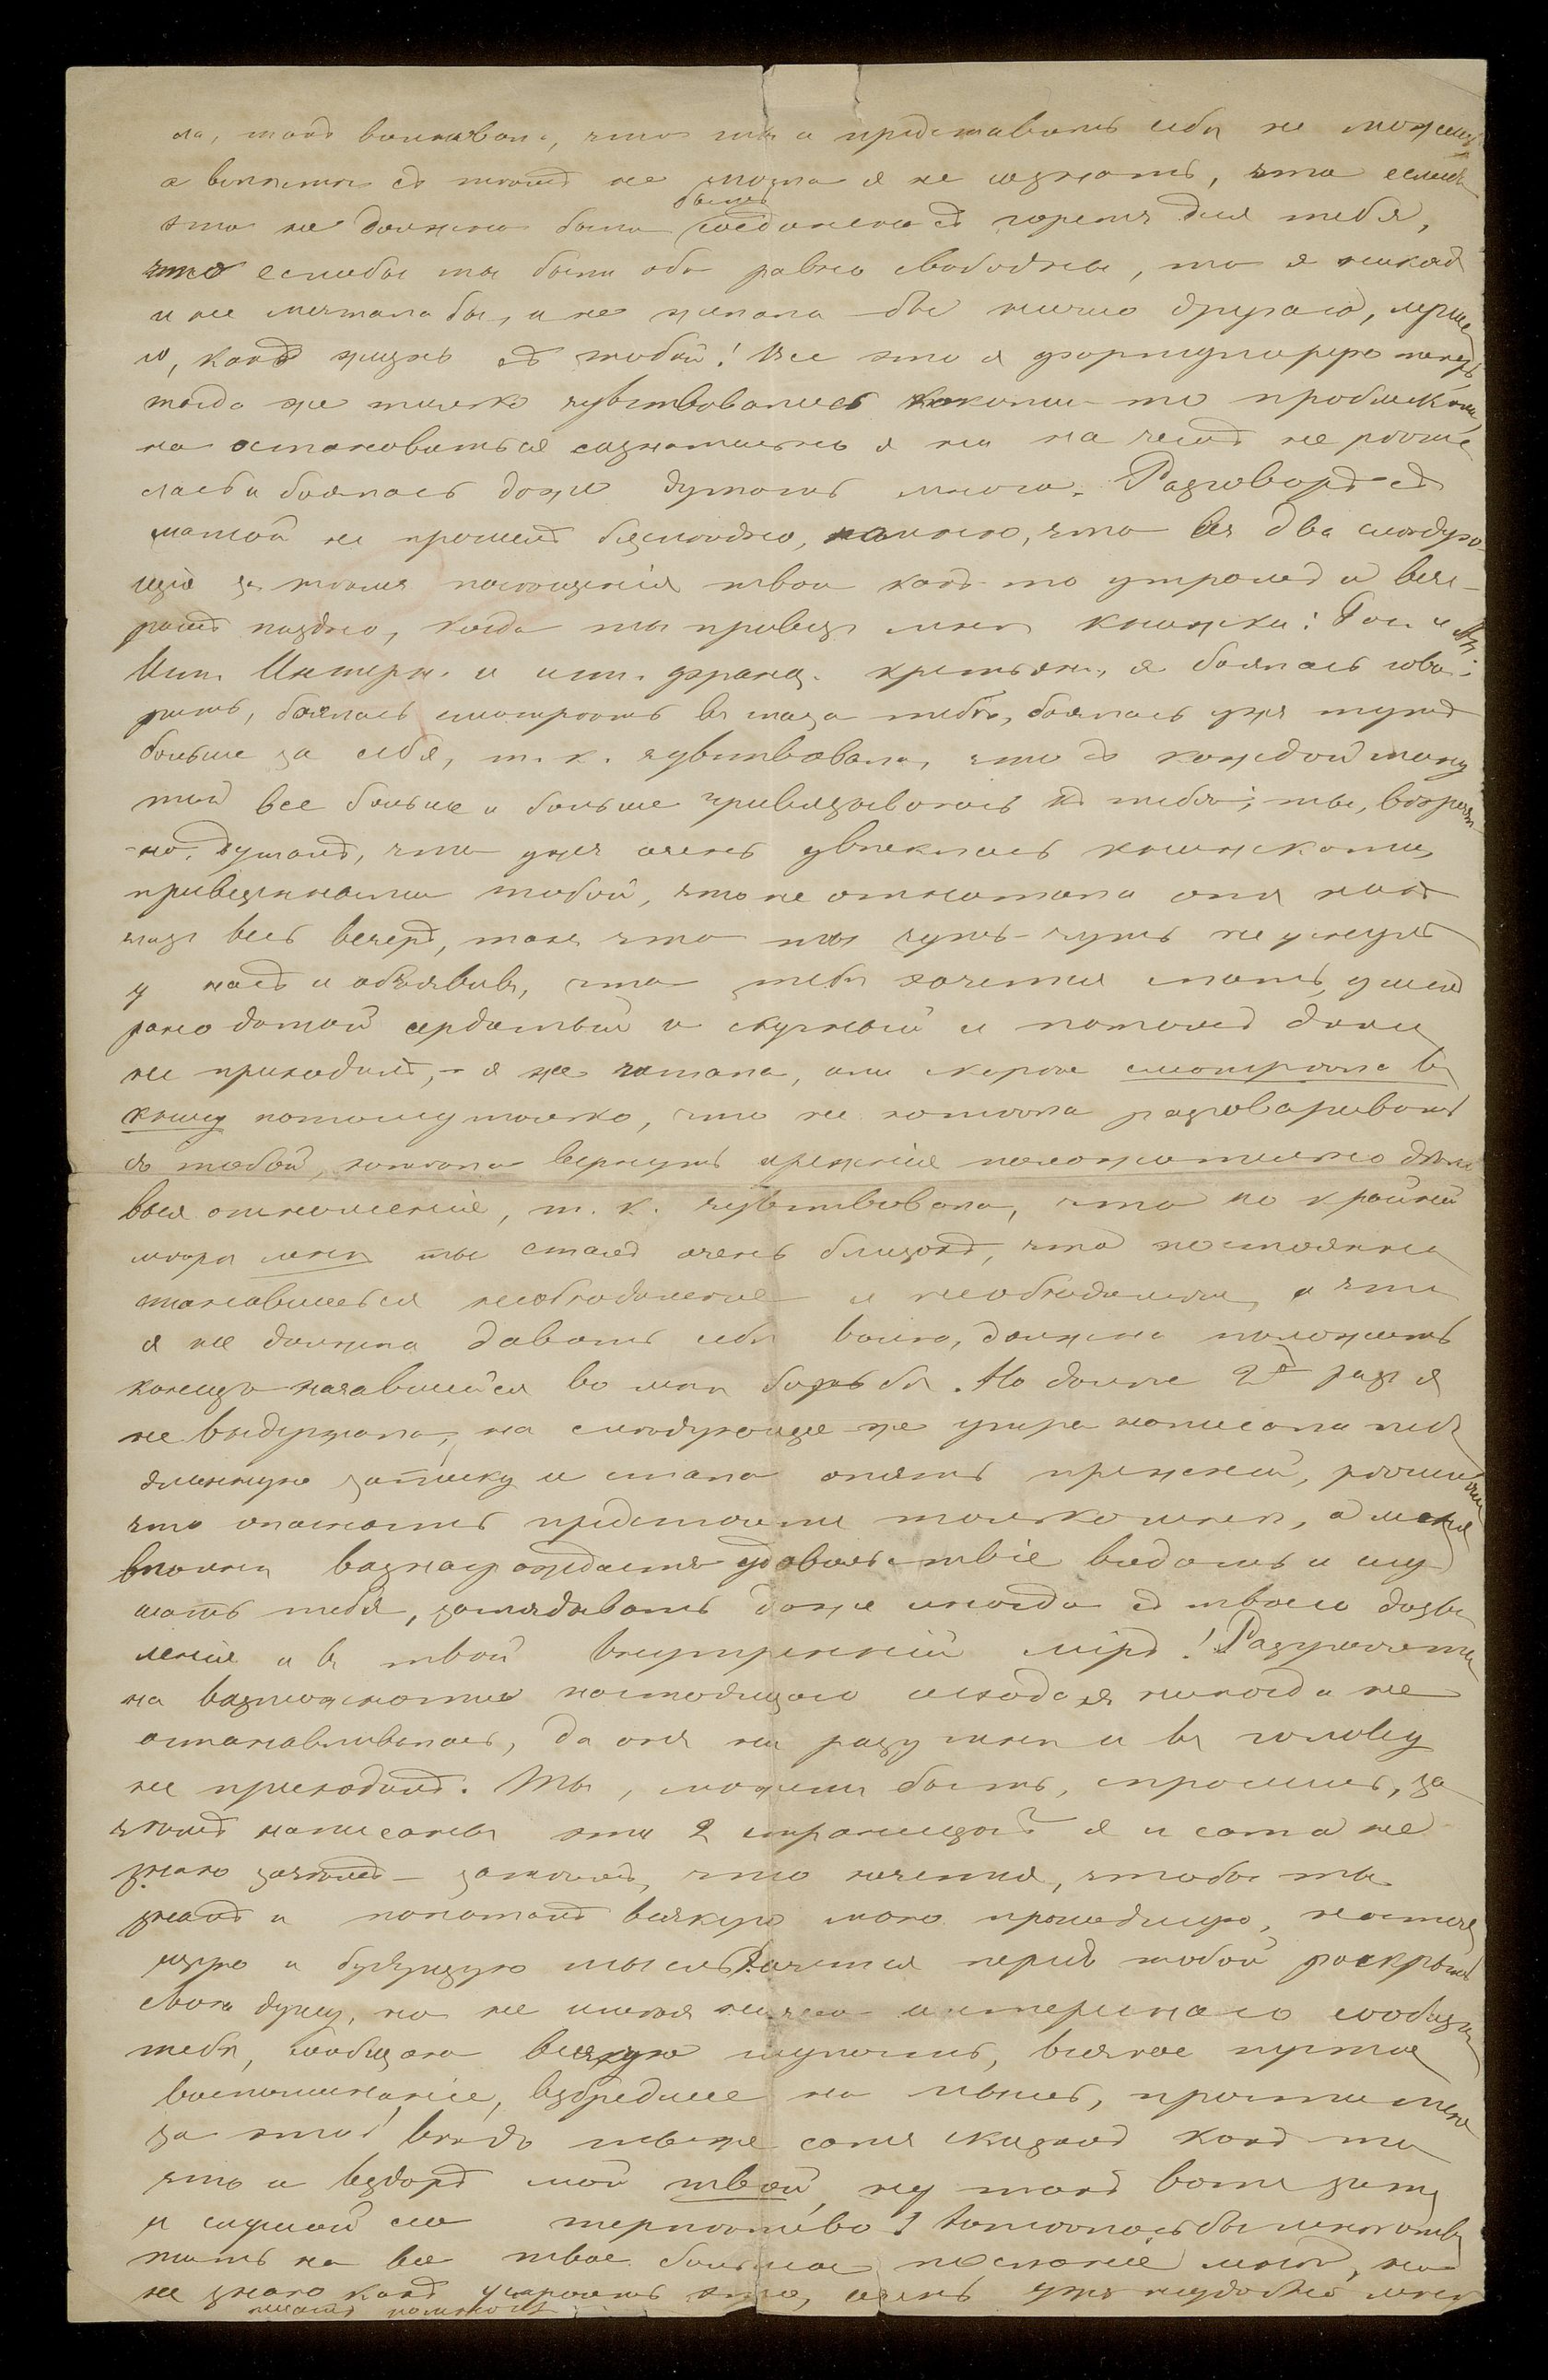 ла, такъ волновала, что ты и представить себѣ не можешь,
а вмѣстѣ съ тѣмъ не могла я не сознать, что еслибъ
это не должно было быть соединено съ горемъ для тебя,
что еслибы мы были оба равно свободны, то я никогда
и не мечтала бы, и не желала бы ничего другого, лучша
го, какъ жизнь съ тобой! Все это я формулирую теперь,
тогда же только чувствовалось какими-то проблесками,
но остановиться сознательно я ни на чемъ не рѣша
лась и боялась даже думать много. Разговоръ съ
мамой не прошелъ безслѣдно, помню, что въ два слѣдую-
щія за тѣмъ посѣщенія твои какъ-то утромъ и вече-
ромъ поздно, когда ты привезъ мнѣ книжки: Гос. и Ан.
Ист. Интерн. и ист. франц. крестьян., я боялась гово-
рить, боялась смотрѣть въ глаза тебѣ, боялась уже тутъ
больше за себя, т. к. чувствовала, что съ каждой мину
той все больше и больше привязываюсь къ тебѣ; ты, вѣроят-
но, думалъ, что уже очень увлеклась книжками,
привезенными тобой, что не отнимала отъ нихъ
глазъ весь вечеръ, такъ что ты чуть-чуть не уснулъ
у насъ и объявивъ, что тебѣ хочется спать, ушелъ
рано домой сердитый и скучный и потомъ долго
не приходилъ, - я же читала, или скорѣе смотрѣла въ
книгу потому только, что не хотѣла разговаривать
съ тобой, хотѣла вернуть прежнія положительно дѣло
выя отношенія, т. к. чувствовала, что по крайней
мѣрѣ мнѣ ты сталъ очень близокъ, что постоянно
становишься необходимѣе и необходимѣе, и что
я не должна давать себѣ волю, должна положить
конецъ начавшейся во мнѣ борьбѣ. Но долѣе 2хъ разъ я
не выдержала, на слѣдующее же утро написала тебѣ
длинную записку и стала опять прежней, рѣшивши,
что опасность предстоитъ только мнѣ, а меня
вполнѣ вознаграждаетъ удовольствіе видѣть и слу
шать тебя, заглядывать даже иногда съ твоего дозво
ленія и въ твой внутренній міръ! Разумѣется
на возможности настоящаго исхода я никогда не
останавливалась, да онъ ни разу мнѣ и въ голову
не приходилъ. Ты, можетъ быть, спросишь, за
чѣмъ написаны эти 2 страницы? я и сама не
знаю зачѣмъ - затѣмъ, что хочется, чтобы ты
зналъ и понималъ всякую мою прошедшую, настоя
щую и будущую мысль. Хочется передъ тобой раскрыть
свою душу, но не имѣя ничего интереснаго сообщить
тебѣ, сообщаю всякую глупость, всякое пустое
воспоминаніе, взбредшее на мысль, прости меня
за это! вѣдь ты же самъ сказалъ какъ то
что и вздоръ мой твой, ну такъ вотъ зато
и слушай его терпѣливо! Хотѣлось бы мнѣ отвѣ
тить на все твое большое посланіе мнѣ, но
не знаю какъ устроить это, очень уже неудобно мнѣ